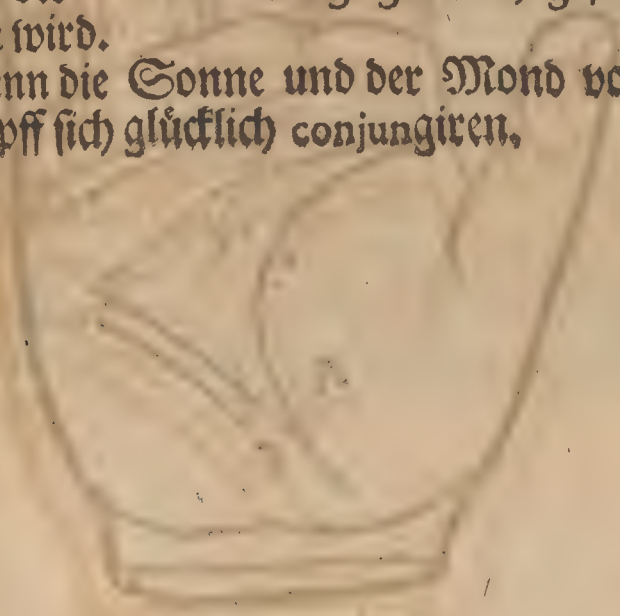 wird.
die Sonne und der Mond
sich glücklich conjungiren,